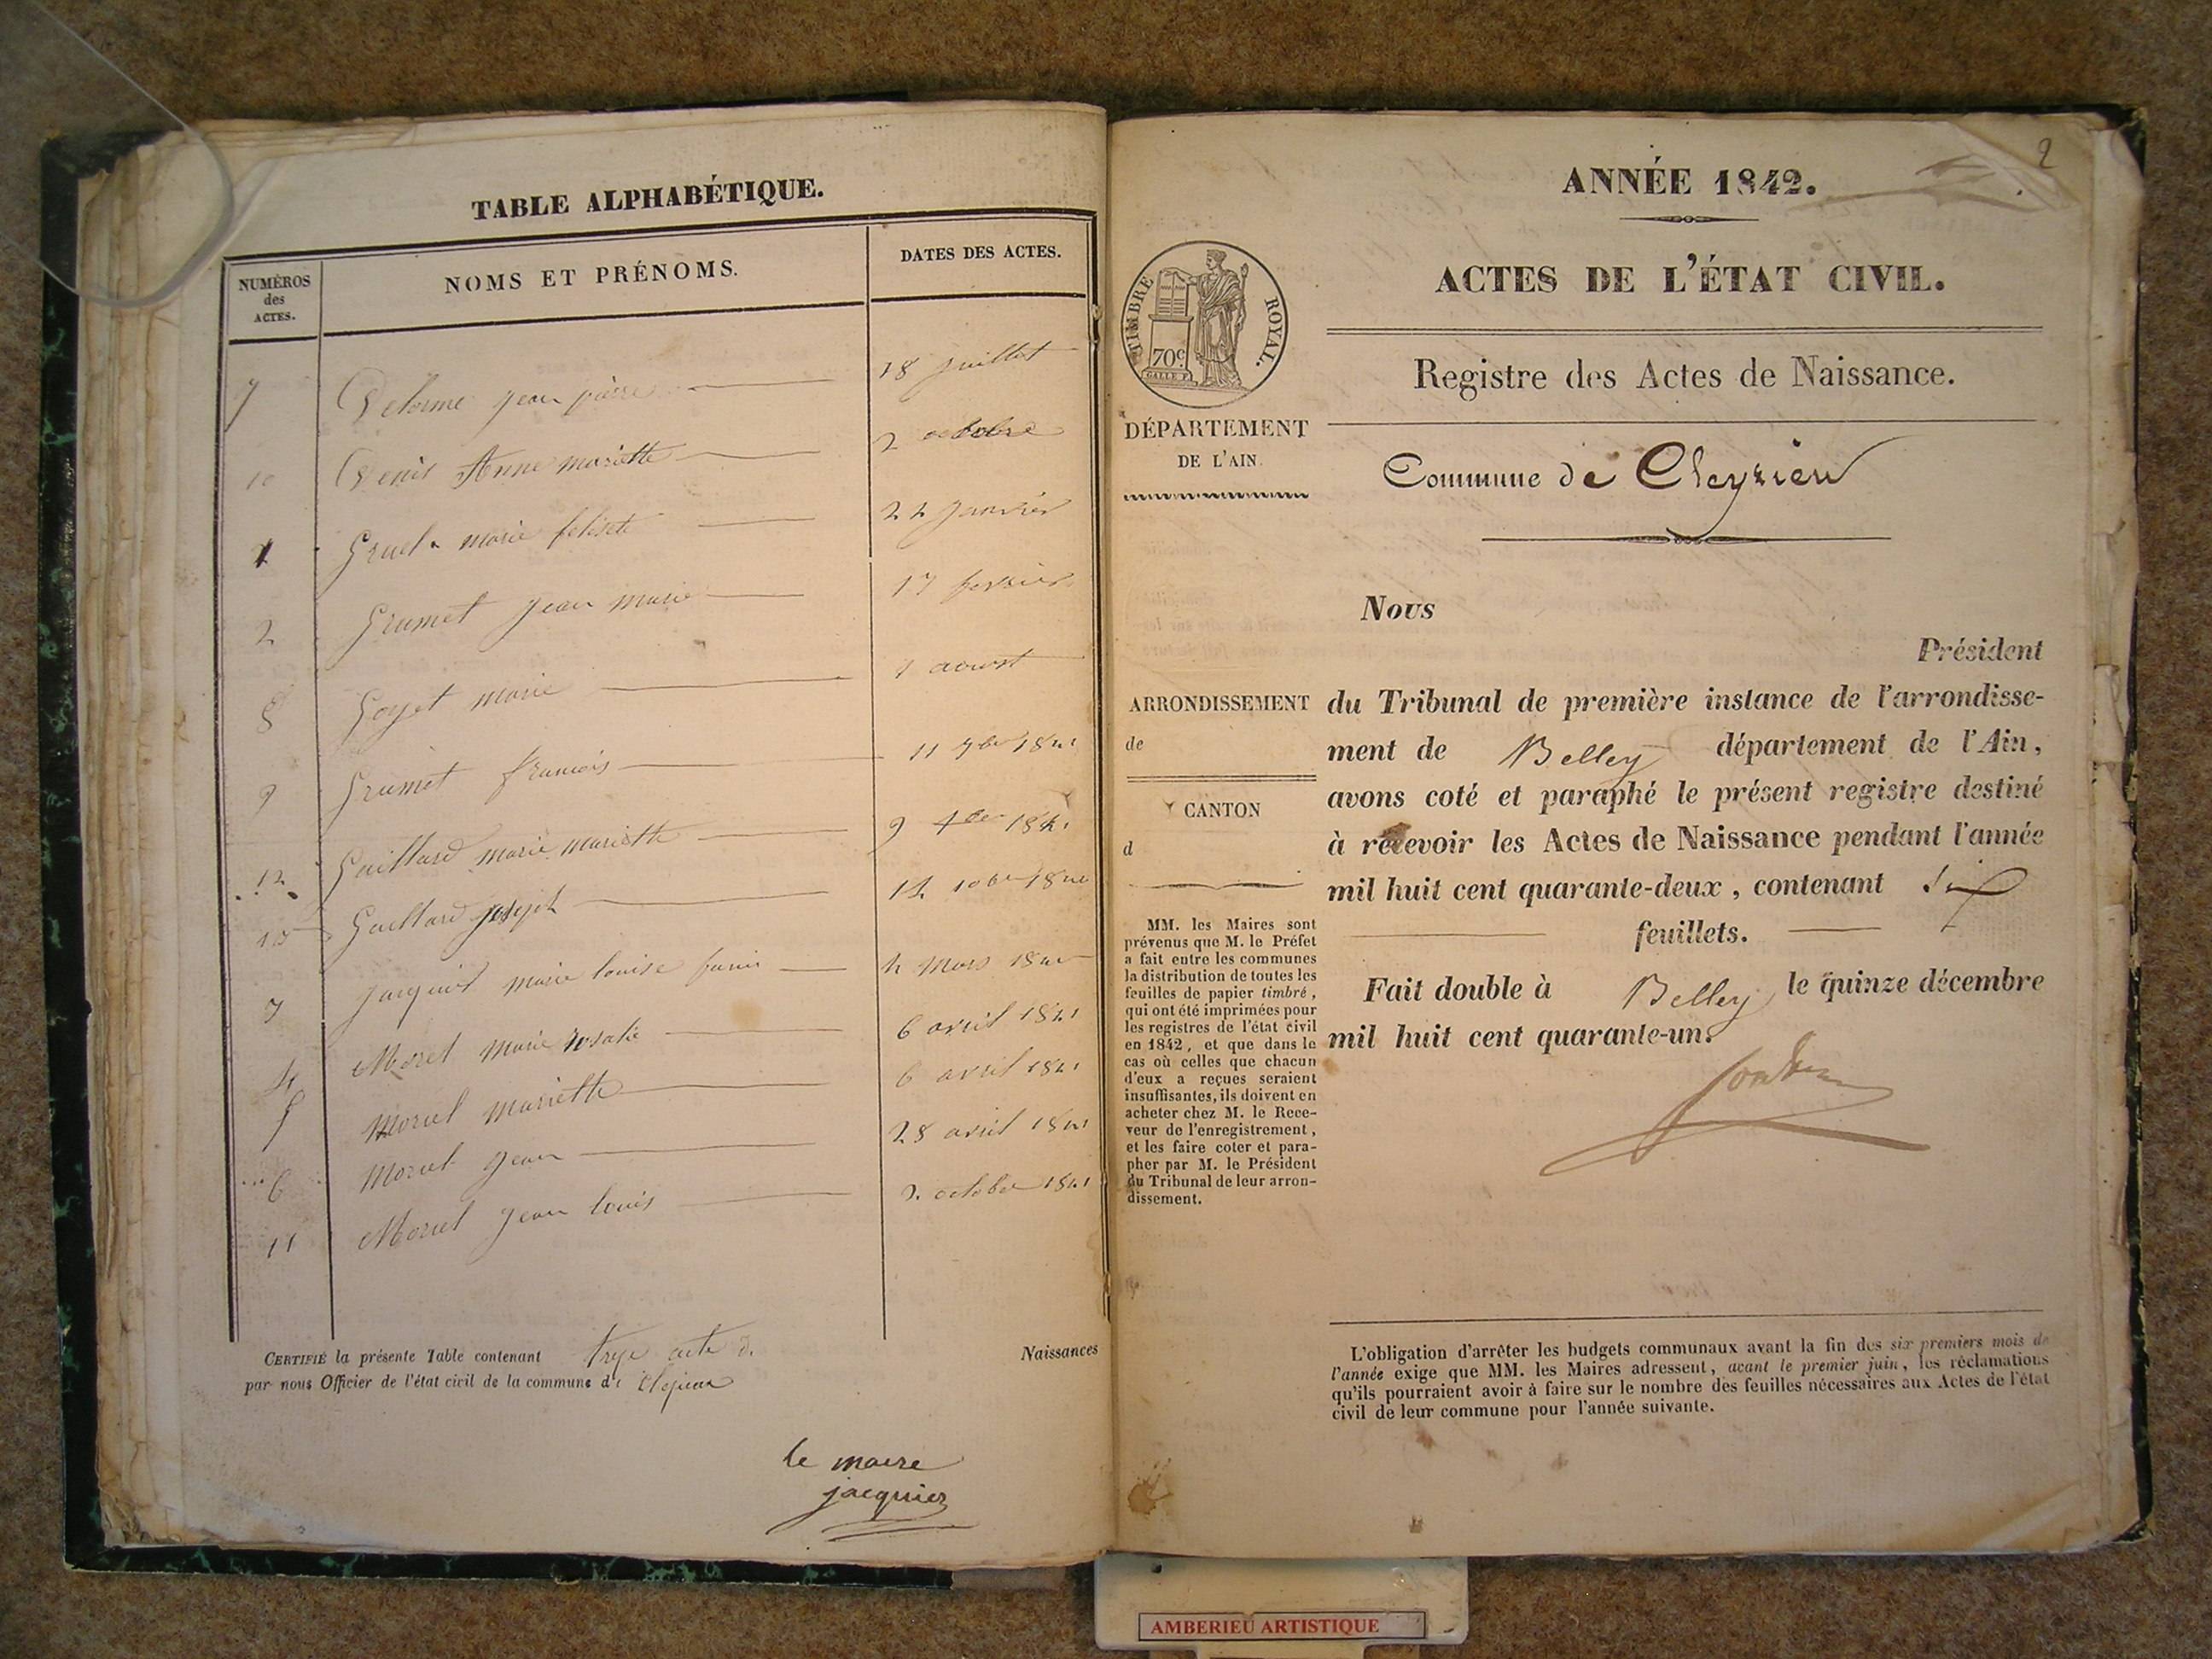 TABLE ALPHABÉTIQUE.
NUMÉROS des ACTES. NOMS ET PRÉNOMS. DATES DES ACTES.
7 Delorme jean pierre 18 juillet
10 Denis Anne mariette 2 octobre
1 Gruel marie 22 janvier
2 Grumet jean marie 17 fevrier
8 Goyet marie aoust
9 Grumet francois 11 7bre 1841
12 Gaillard marie mariette 9
13 Gaillard joseph 10bre
3 marie louise mars
4 Morel marie rosalie 6 avril 1841
5 Morel mariette 6 avril 1841
6 Morel jean 28 avril 1841
11 Morel jean louis 2 octobre 1841
CERTIFIÉ la présente Table contenant acte d. Naissances
par nous Officier de l'état civil de la commune de
le maire
jacquier
2
ANNÉE 1842.
ACTES DE L'ÉTAT CIVIL.
Registre des Actes de Naissance.
Commune de Cleyzieu
TIMBRE ROYAL.
70c
DÉPARTEMENT
DE L'AIN.
ARRONDISSEMENT
de
CANTON
d
MM. les Maires sont
prévenus que M. le Préfet
a fait entre les communes
la distribution de toutes les
feuilles de papier timbré,
qui ont été imprimées pour
les registres de l'état civil
en 1842, et que dans le
cas où celles que chacun
d'eux a reçues seraient
insuffisantes, ils doivent en
acheter chez M. le Rece-
veur de l'enregistrement,
et les faire coter et para-
pher par M. le Président
du Tribunal de leur arron-
dissement.
Nous
Président
du Tribunal de première instance de l'arrondisse-
ment de Belley département de l'Ain,
avons coté et paraphé le présent registre destiné
à recevoir les Actes de Naissance pendant l'année
mil huit cent quarante-deux, contenant six
feuillets.
Fait double à Belley le quinze décembre
mil huit cent quarante-un.
L'obligation d'arrêter les budgets communaux avant la fin des six premiers mois de
l'année exige que MM. les Maires adressent, avant le premier juin, les réclamations
qu'ils pourraient avoir à faire sur le nombre des feuilles nécessaires aux Actes de l'état
civil de leur commune pour l'année suivante.
AMBERIEU ARTISTIQUE